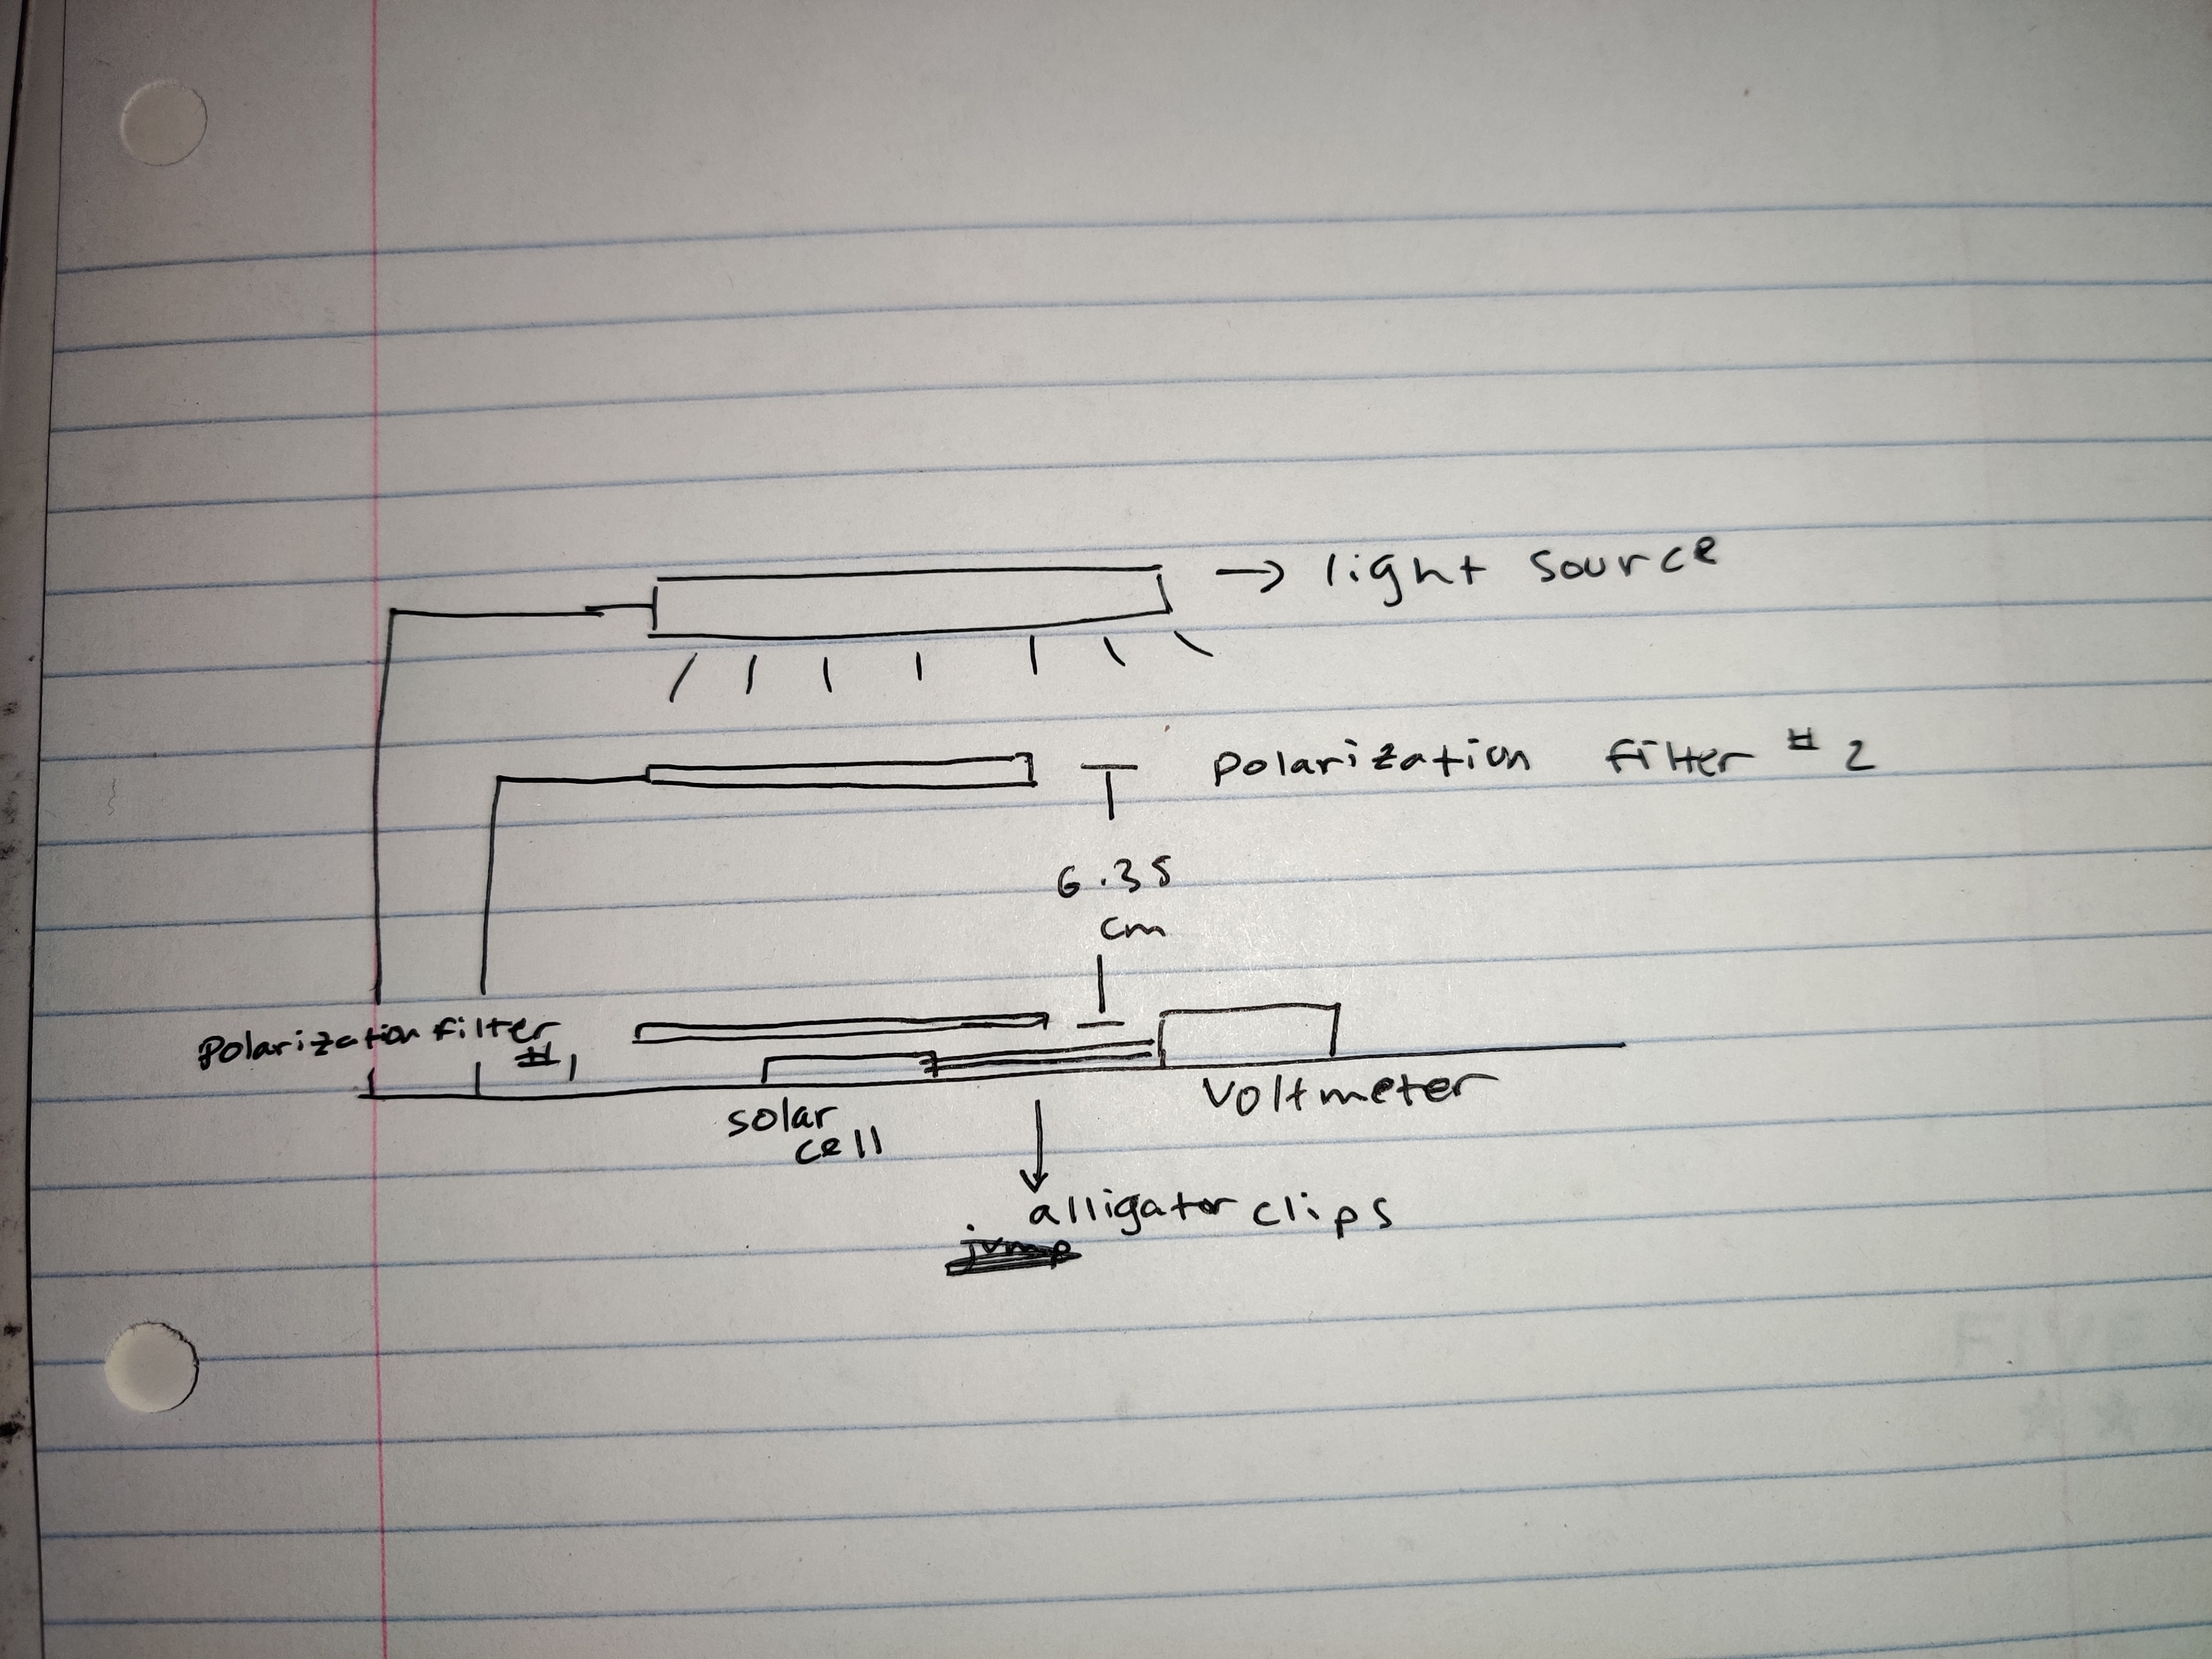 → light source
polarization filter # 2
6.35
cm
polarization filter
# 1
solar
cell
voltmeter
alligator clips
jump
FIVE